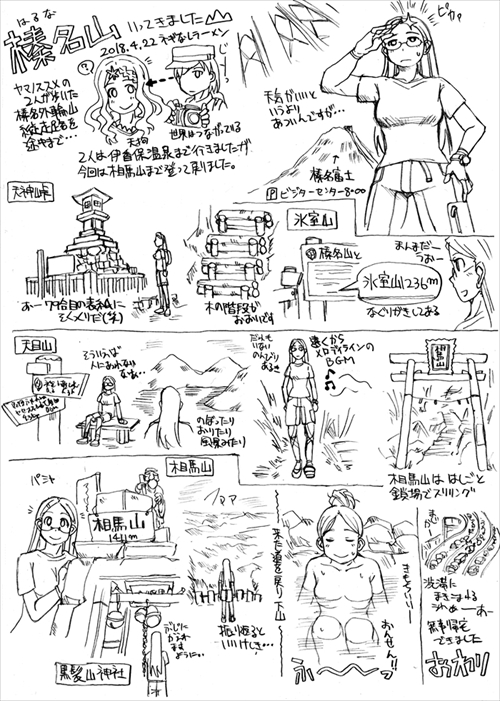 はるな
榛名山
いってきました
2018.4.22 ネギなしラーメン
ヤマノススメの
2人が歩いた
榛名外輪山
縦走広名を
途中まで…
?
じーっ
天狗
世界はつながっている
2人は伊香保温泉まで行きましたが
今回は相馬山まで登って戻りました。
ピカッ
天気がいいと
いうより
あついんですが…
榛名富士
P ビジターセンター8:00
天神峠
おー
木の階段が
おおいです
氷室山
榛名山と
氷室山1236m
なぐりがきしてある
まんまだー
うおー
天目山
そういえば
人にあわない
なぁ…
のぼったり
おりたり
風景みたり
だれも
いない
のんびり
あるき
遠くから
メロディラインの
BGM
相馬山
相馬山は はしごと
鎖場でスリリング
相馬山
パシャ
相馬山
1411m
黒髪山神社
ぶじに
かえれ
ます
ように…
ファァ
振り返ると
いいけしき…
来た道を戻り下山
きもちいいー
おんせん!!
ふ～～
渋滞に
まきこまれ
つつ
無事帰宅
できました
おわり